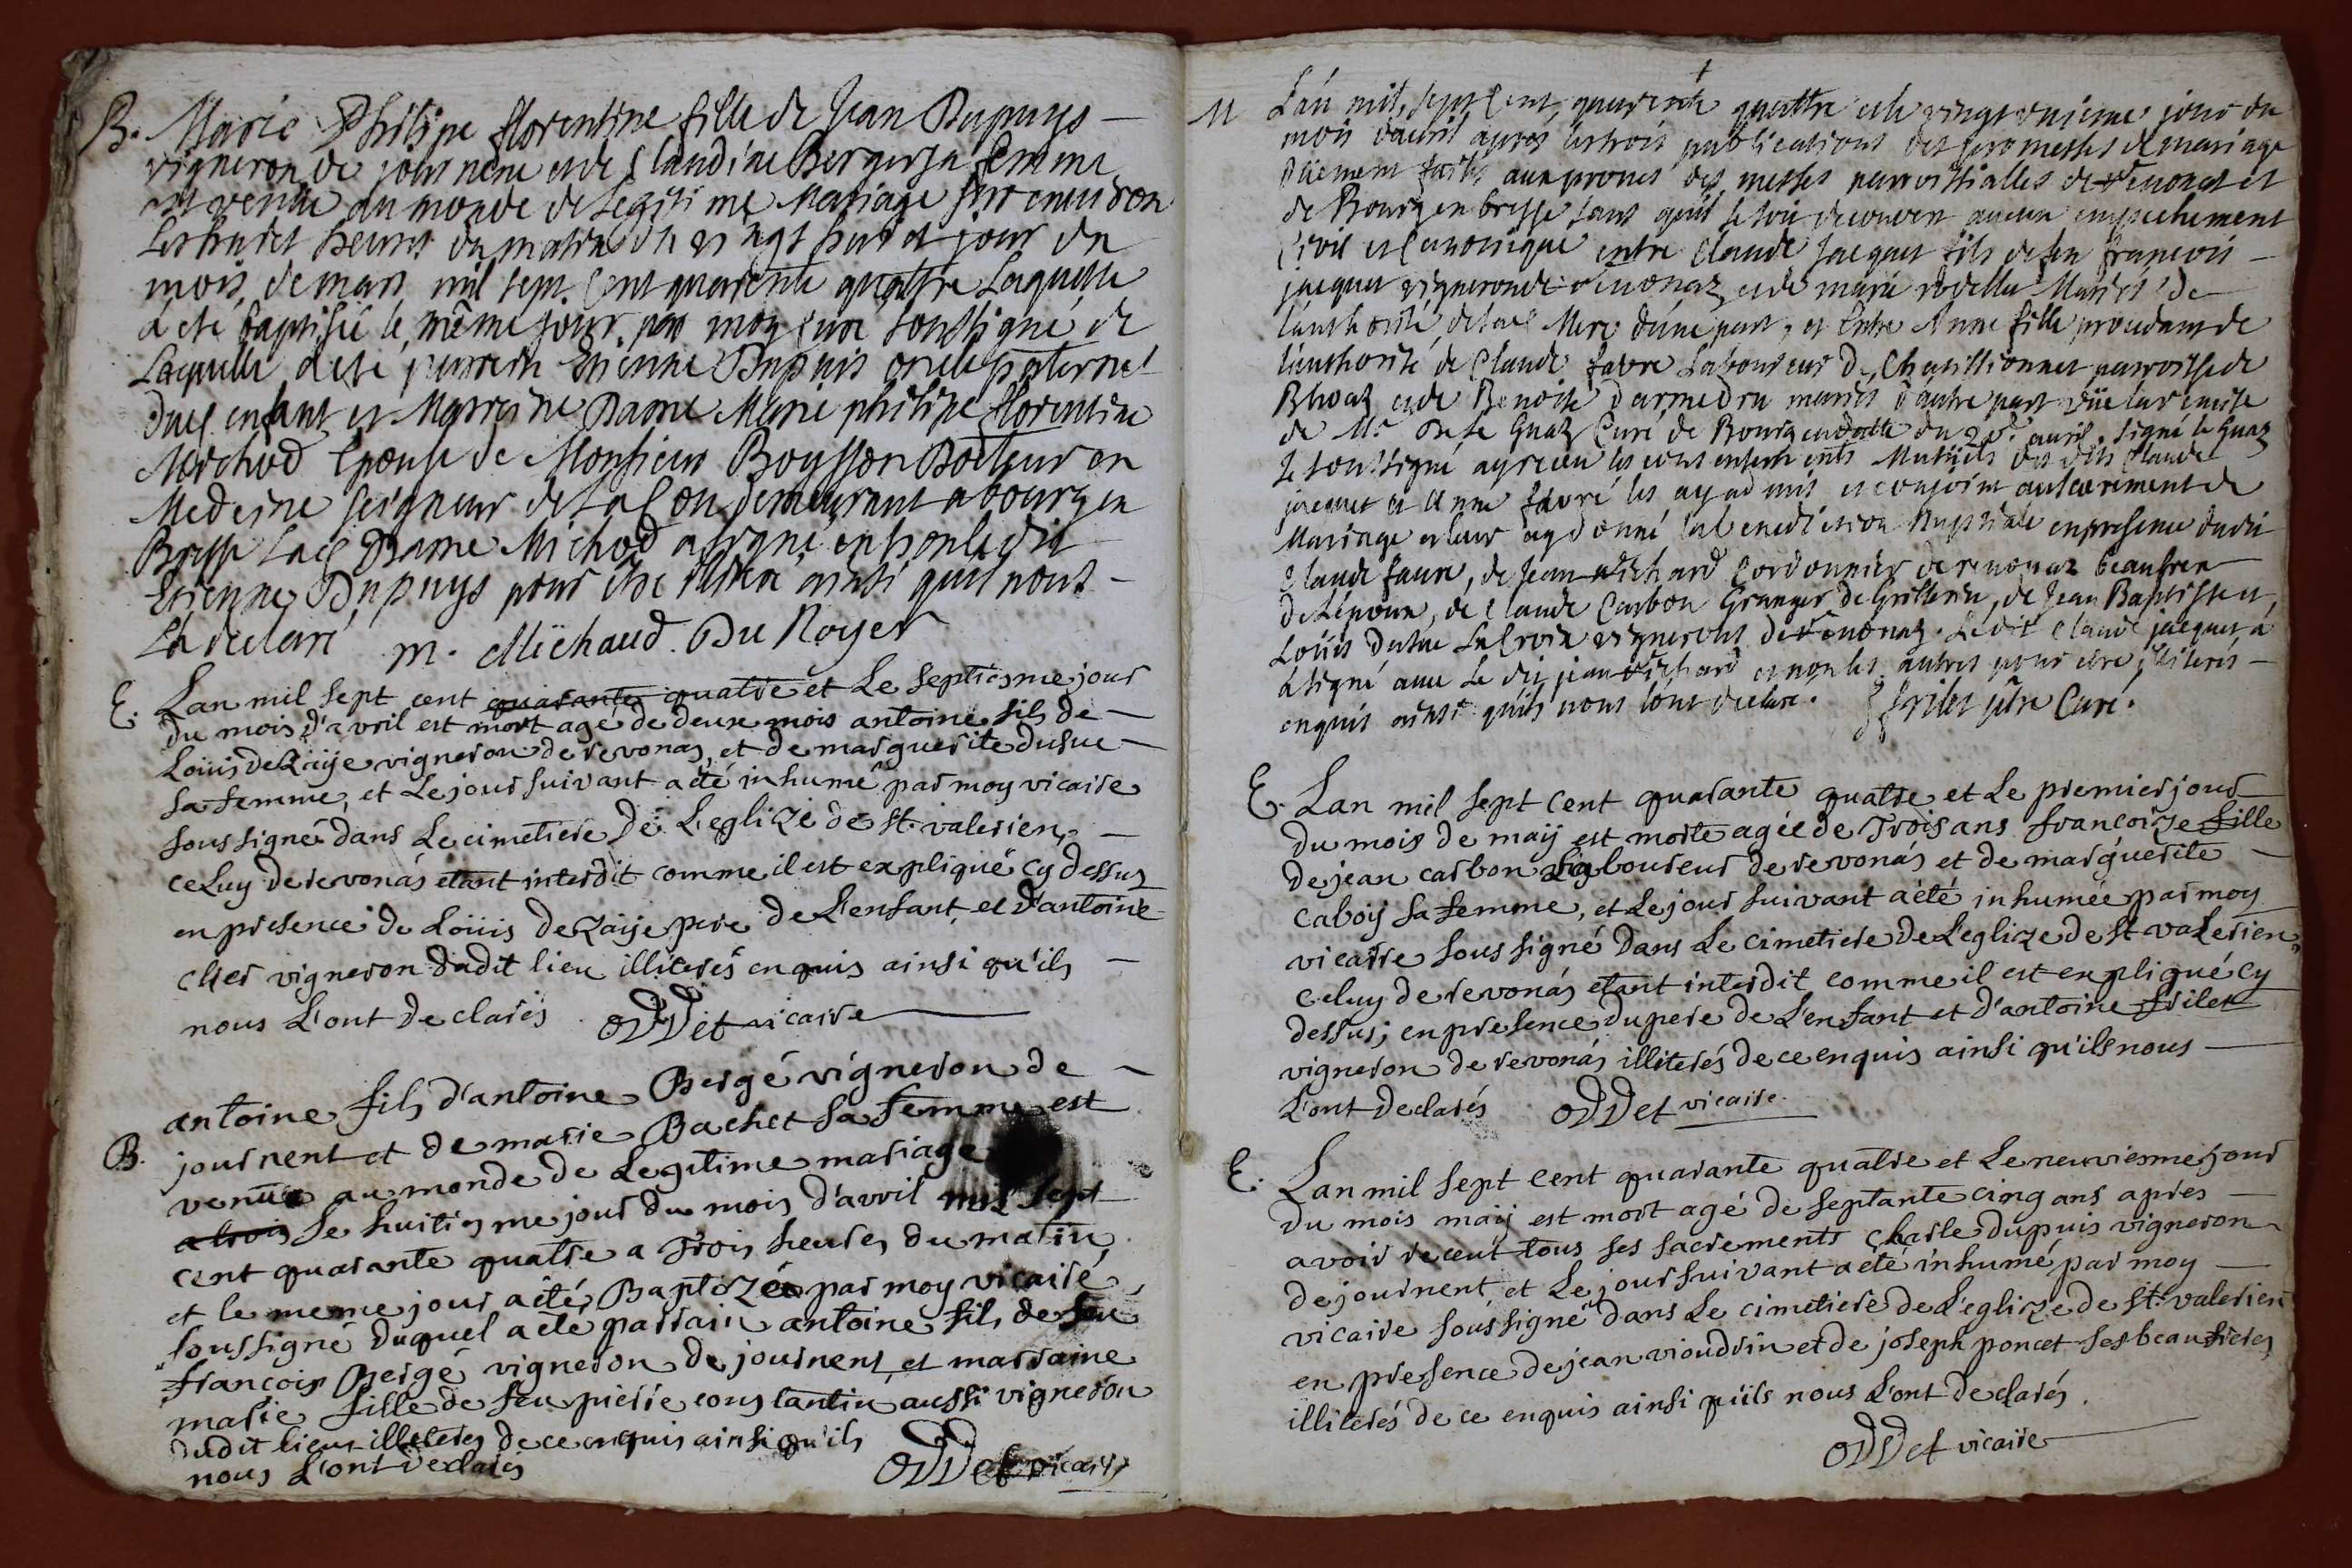 B. Marie Philipe florentine fille de Jean Dupuys
vigneron de journene et de Claudine Berger sa femme
est venüe au monde de legitime Mariage sur environ
les huict heures du matin du vingt huict jour du
mois de mars mil sept Cent quarente quattre Laquelle
a eté baptisée le même jour par moy Curé soussigné de
Laquelle a eté parrein Etienne Dupuis oncle paternel
du enfant et Marreine Dame Marie philipe florentine
Michod Epouse de Monsieur Boysson Docteur en
Medecine seigneur de demeurant a bourg en
Bresse Dame Michod a signé et non le dit
Etienne Dupuys pour être ainsi quil nous
La declaré m. Mïchaud. Du Royer
E. Lan mil sept cent quarante quatre et Le septiesme jour
du mois d'avril est mort agé de deux mois antoine fils de
Loüis de Laije vigneron de revonas, et de marguerite dufue
sa femme, et Le jour suivant a eté inhumé par moy vicaire
sous signé dans Le cimetiere de L'eglize de st. valerien,
celuy de revonás etant interdit comme il est expliqué cy dessus
en presence de Loüis de Laije pere de L'enfant et d'antoine
clier vigneron dudit lieu illiterés enquis ainsi qu'ils
nous L'ont declarés oDDet vicaire
antoine fils d'antoine Bergé vigneron de
B. journent et de marie Bachet sa femme est
venüe au monde de Legitime mariage
a trois Le huitiesme jour du mois d'avril mil sept
cent quarante quatre a Trois heures du matin,
et le meme jour a eté Baptizée par moy vicaire
soussigné duquel a eté parrain antoine fils de feu
francois Bergé vigneron de journent et marraine
marie fille de feu pierre constantin aussi vigneron
dudit lieu illiteres de ce enquis ainsi qu'ils
nous L'ont declares oDDet vicaire
M L'an mil sept Cent quarente quattre et le vingt unieme jour du
mois d'avril apres les trois publications des promesses de mariage
düement faites aux prones des messes parroissialles de revonas et
de Bourg en bresse sans qu'il se soit decouvert aucun empechement
Civil et Canonique entre Claude Jacquet fils de feu françois
jacquet vigneron de revonaz et de marie Mariés de
l'authorité de Mere d'une part, et Entre Anne fille procedant de
l'authorité de Claude favre Laboureur de Chatillionnet parroisse de
et de Benoite Darmedru mariés d'autre part vüe la remise
de Mr. Curé de Bourg en datte du avril. signé le
Je soussigné ay receu les consentements Mutuels des dits Claude
jacquet et Anne favre les ay admis et conjoint au sacrement de
Mariage et leur ay donné la benediction Nuptiale en presence dudit
Claude faure, de Jean Richard Cordonnier de revonaz beaufrere
de L'époux, de Claude Carbon Granger de de Jean Baptiste et
Loüis Dufue vignerons de revonaz. Ledit Claude jacquet a
a signé avec Le dit jean Richard et non les autres pour etre illiterés
enquis ainsi qu'ils nous l'ont declaré. frilet ptre Curé.
E. Lan mil sept Cent quarante quatre et Le premier jour
du mois de maij est morte agée de Trois ans francoize fille
de jean carbon Laboureur de revonás et de marguerite
caboij sa femme, et Le jour suivant a eté inhumée par moy
vicaire sous signé dans Le cimetiere de L'eglize de st valerien,
celuy de revonás etant interdit comme il est expliqué cy
dessus, en presence du pere de L'enfant et d'antoine frilet
vigneron de revonás illiterés de ce enquis ainsi qu'ils nous
L'ont declarés oDDet vicaire.
E. Lan mil sept cent quarante quatre et Le neuviesme jour
du mois maij est mort agé de septante cinq ans apres
avoir receut tous ses sacrements charle dupuis vigneron
de journent et Le jour suivant a eté inhumé par moy
vicaire sous signé dans Le cimetiere de L'eglize de st. valerien
en presence de jean vioudrin et de joseph poncet ses beaufreres
illiterés de ce enquis ainsi quils nous L'ont declarés.
oDDet vicaire